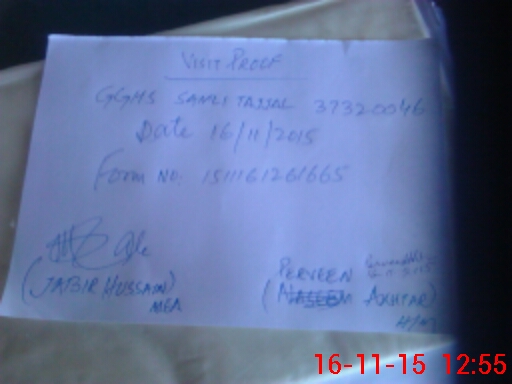 VISIT PROOF
GGHS SANLI TAJJAL 37320046
Date 16/11/2015
Form NO. 1511161261665
(JATBIR HUSSAIN)
MEA
PERVEEN
( AKHTAR)
16-11-15 12:55